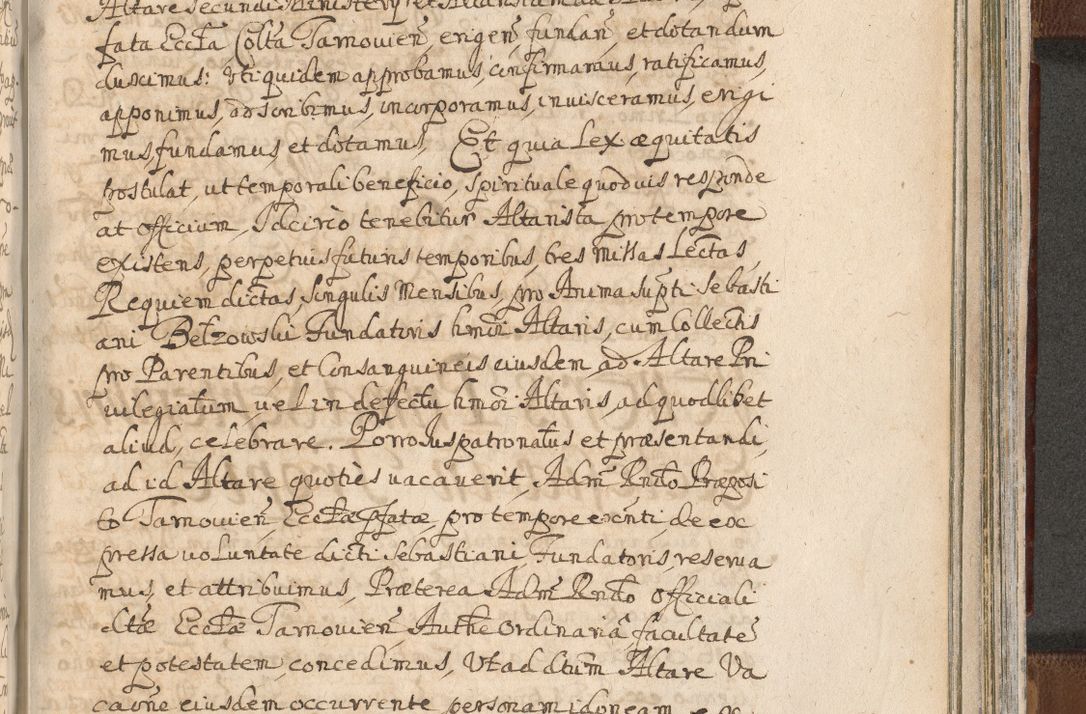 Altare secundi Ministerii
fata Eccła Colta Tarnovien̄, erigen̄, fundan̄, et dotandum
duximus: Uti quidem approbamus, confirmamus, ratificamus,
apponimus, adscribimus, incorporamus, invisceramus, erigi
mus, fundamus et dotamus, Et quia Lex æquitatis
postulat, ut temporali beneficio, spirituale quodvis responde
at officium, Idcircò tenebitur Altarista pro tempore
existens, perpetuis futuris temporibus, tres Missas Lectas,
Requiem dictas, singulis Mensibus, pro Anima supti Sebasti
ani Bełzowski Fundatoris hmōi Altaris, cum Collectis
pro Parentibus, et Consanguineis eiusdem ad Altare Pri
uilegiatum, uel in defectu hmōi Altaris, ad quodlibet
aliud, celebrare. Porro Jus patronatus et præsentandi,
ad id Altare quoties uacauerit, Adm̄ Rndo Præposi
to Tarnouien̄, Eccłæ Pfatæ pro tempore exn̄ti, de ex
pressa uoluntate dicti Sebastiani, Fundatoris, reserua
mus, et attribuimus, Præterea Adm̄ Rndo Officiali
dltæ Eccłæ Tarnouien̄ Authe Ordinariâ facultatē
et potestatem, concedimus, Ut ad dtum̄ Altare Va
caōne eiusdem occurrente personam idoneam